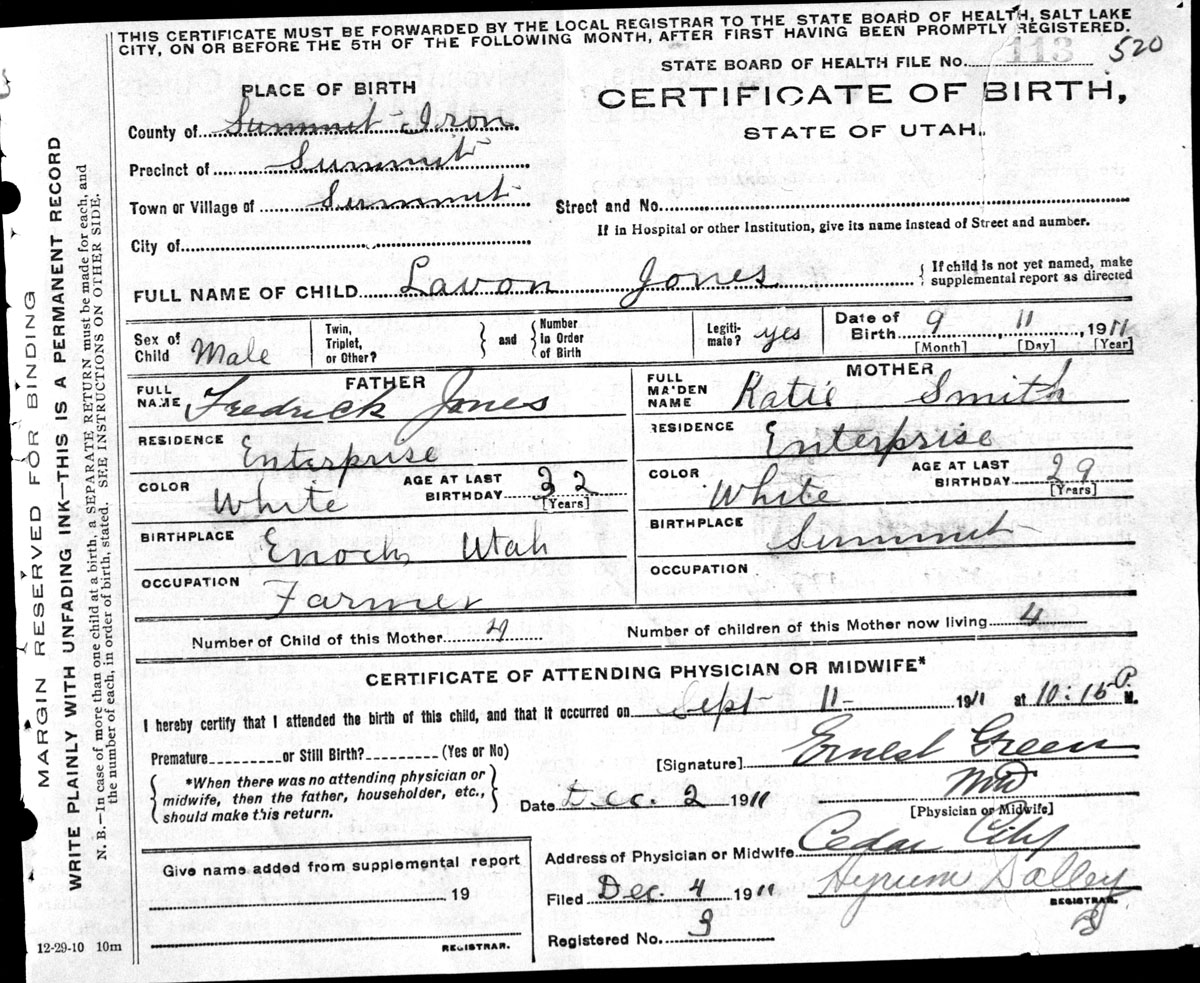 THIS CERTIFICATE MUST BE FORWARDED BY THE LOCAL REGISTRAR TO THE STATE BOARD OF HEALTH, SALT LAKE
CITY, ON OR BEFORE THE 5TH OF THE FOLLOWING MONTH, AFTER FIRST HAVING BEEN PROMPTLY REGISTERED.
STATE BOARD OF HEALTH FILE No. 113 520
PLACE OF BIRTH
CERTIFICATE OF BIRTH,
STATE OF UTAH.
County of Summit - Iron
Precinct of Summit
Town or Village of Summit
Street and No.
If in Hospital or other Institution, give its name instead of Street and number.
City of
FULL NAME OF CHILD Lavon Jones
{ If child is not yet named, make
supplemental report as directed
Sex of Child Male
Twin, Triplet, or Other? } and { Number in Order of Birth
Legitimate? yes
Date of Birth 9 11 1911
[Month] [Day] [Year]
FATHER
FULL NAME Fredrick Jones
RESIDENCE Enterprise
COLOR White AGE AT LAST BIRTHDAY 32 [Years]
BIRTHPLACE Enoch, Utah
OCCUPATION Farmer
MOTHER
FULL MAIDEN NAME Katie Smith
RESIDENCE Enterprise
COLOR White AGE AT LAST BIRTHDAY 29 [Years]
BIRTHPLACE Summit
OCCUPATION
Number of Child of this Mother 4 Number of children of this Mother now living 4
CERTIFICATE OF ATTENDING PHYSICIAN OR MIDWIFE*
I hereby certify that I attended the birth of this child, and that it occurred on Sept 11- 1911 at 10:15 P. M.
Premature or Still Birth? (Yes or No)
[Signature] Ernest Green
MD
[Physician or Midwife]
{ *When there was no attending physician or
midwife, then the father, householder, etc.,
should make this return. }
Date Dec. 2 1911
Address of Physician or Midwife Cedar City
Give name added from supplemental report
19
REGISTRAR.
Filed Dec. 4 1911 Hyrum Dalley
REGISTRAR.
Registered No. 3
12-29-10 10m
MARGIN RESERVED FOR BINDING
WRITE PLAINLY WITH UNFADING INK—THIS IS A PERMANENT RECORD
N. B.—In case of more than one child at a birth, a SEPARATE RETURN must be made for each, and
the number of each, in order of birth, stated. SEE INSTRUCTIONS ON OTHER SIDE.